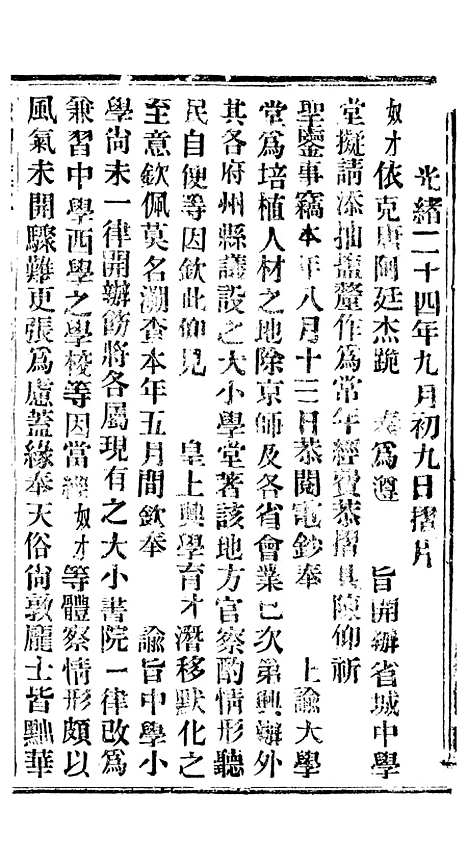 光緒二十四年九月初九日摺片
奴才依克唐阿廷杰跪 奏爲遵 旨開辦省城中學
堂擬請添抽鹽釐作爲常年經費恭摺具陳仰祈
聖鑒事竊本年八月十三日恭閱電鈔奉 上諭大學
堂爲培植人材之地除京師及各省會業已次第興辦外
其各府州縣議設之大小學堂著該地方官察酌情形聽
民自便等因欽此仰見 皇上興學育才潛移默化之
至意欽佩莫名溯查本年五月間欽奉 諭旨中學小
學尙未一律開辦飭將各屬現有之大小書院一律改爲
兼習中學西學之學校等因當經奴才等體察情形頗以
風氣未開驟難更張爲慮蓋緣奉天俗尙敦龐士皆黜華